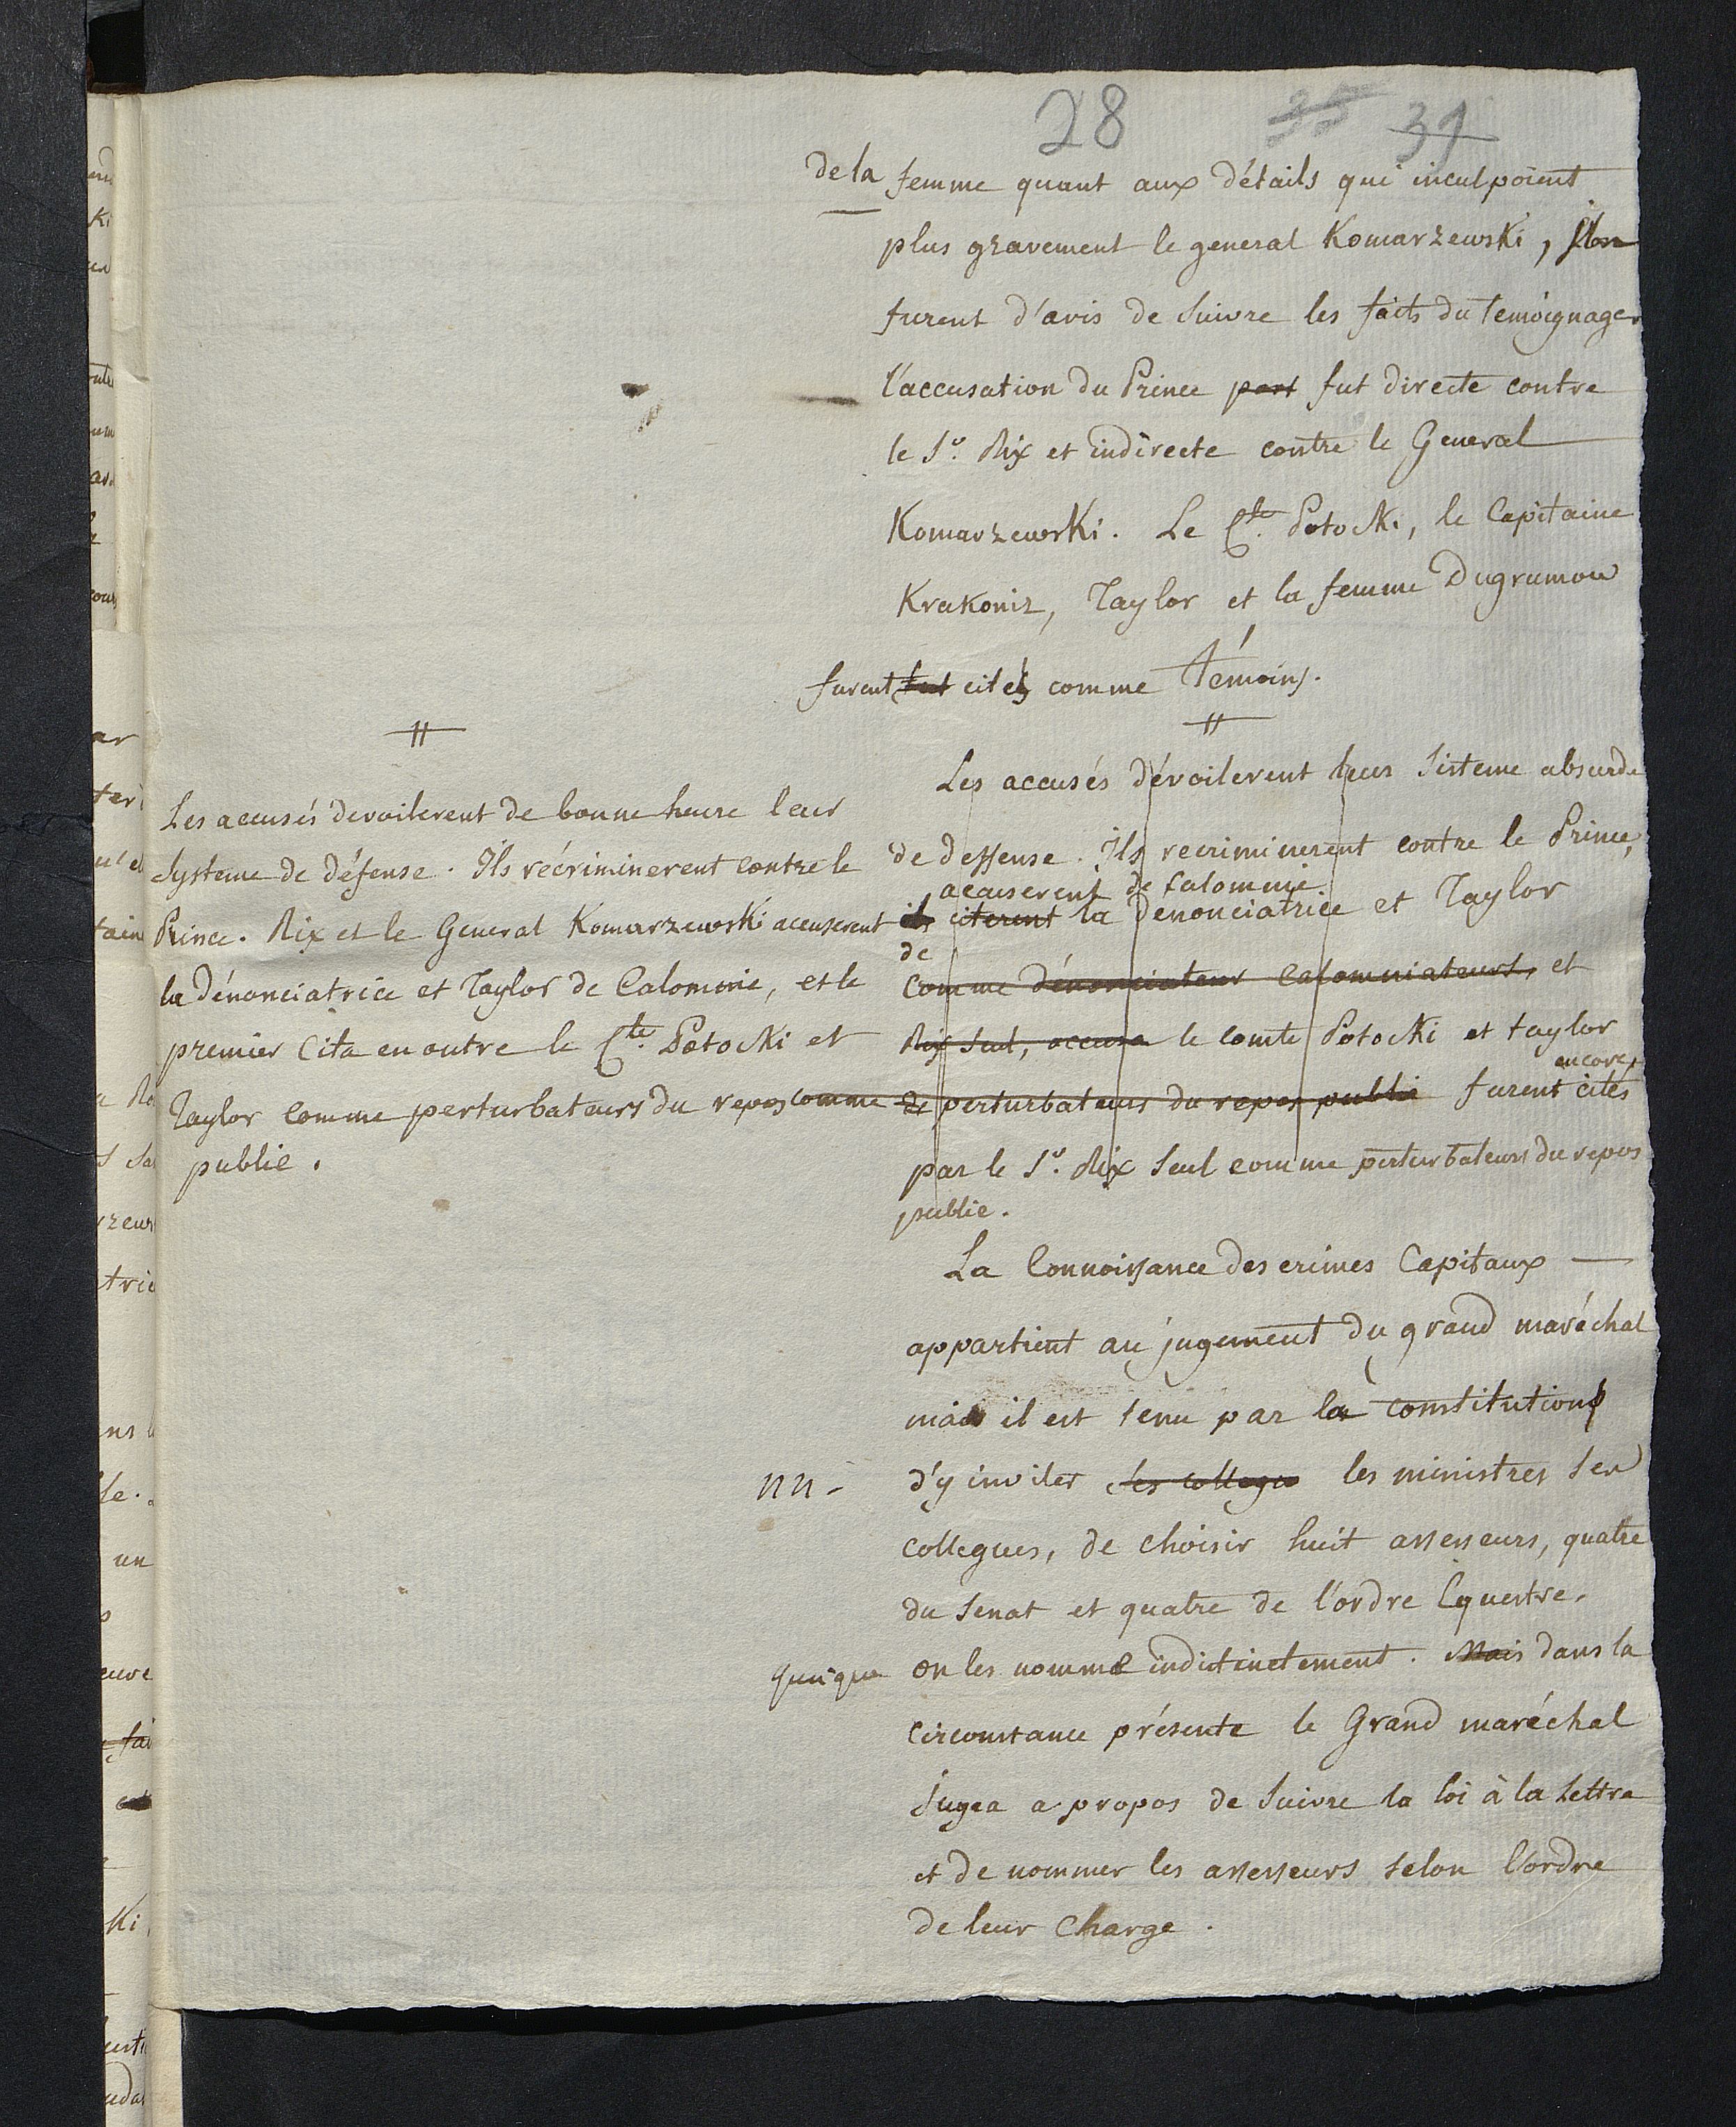 28 35 31
de la femme quant aux détails qui inculpoient
plus gravement le general Komarzewski,
furent d'avis de suivre les faits du temoignage
l'accusation du Prince part fut directe contre
le Sr. Rix et indirecte contre le General
Komarzewski. Le Cte. Potocki, le Capitaine
Krakoniz, Taylor et la femme Dugrumow
furent fut cités comme témoins.
Les accusés dévoilerent leur sisteme absurde
de deffense. Ils recriminerent contre le Prince,
accuserent de calomnie
ils citerent la denonciatrice et Taylor
de
comme dénonciateur calomniateurs, et
Rix seul, accusa le comte Potocki et taylor
encore
comme de perturbateurs du repos public furent cités
par le Sr. Rix seul comme perturbateurs du repos
public.
Les accusés devoilerent de bonne heure leur
systeme de défense. Ils récriminerent contre le
Prince. Rix et le General Komarzewski accuserent
la dénonciatrice et Taylor de Calomnie, et le
premier cita en outre le Cte. Potocki et
Taylor comme perturbateurs du repos
public.
La Connoissance des crimes Capitaux —
appartient au jugement du grand maréchal
mais il est tenu par la constitution
nn - d'y inviter ses collegues les ministres ses
collegues, de choisir huit assesseurs, quatre
du senat et quatre de l'ordre Equestre.
quoique on les nomme indictinctement. Mais dans la
circonstance présente le Grand maréchal
jugea a propos de suivre la loi à la lettre
et de nommer les assesseurs selon l'ordre
de leur charge.